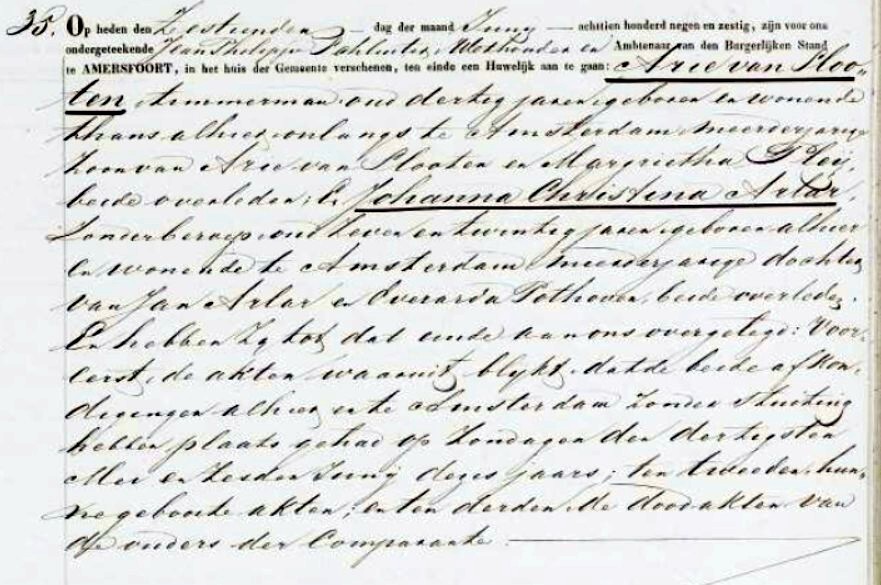 35. Op heden den Zestienden dag der maand Junij achttien honderd negen en zestig, zijn voor ons
ondergeteekende Wethouder en Ambtenaar van den Burgerlijken Stand
te AMERSFOORT, in het huis der Gemeente verschenen, ten einde een Huwelijk aan te gaan: Arie van Ploo-
ten, timmerman, oud dertig jaren, geboren en wonende
thans alhier, onlangs te Amsterdam, meerderjarige
zoon van Arie van Plooten en Margrietha Pleij,
beide overleden; En Johanna Christina Artar,
zonder beroep, oud zeven en twintig jaren, geboren alhier
en wonende te Amsterdam, meerderjarige dochter
van Jan Artar en Everarda Pothoven, beide overleden.
En hebben zij tot dat einde aan ons overgelegd: Voor-
eerst, de akten waaruit blijkt, dat de beide afkon-
digingen alhier en te Amsterdam zonder stuiting
hebben plaats gehad op Zondagen den dertigsten
Mei en zesden Junij dezes jaars; ten tweeden, hun-
ne geboorte akten; en ten derden, de doodakten van
de ouders der Comparante.